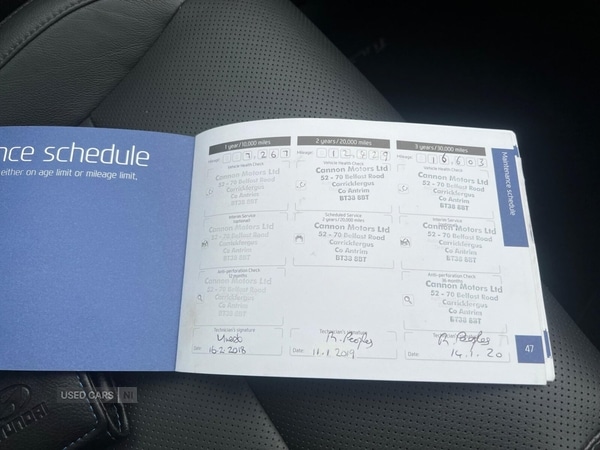 nce schedule
either on age limit or mileage limit.
1 year / 10,000 miles
Mileage: 7,267
Vehicle Health Check
Cannon Motors Ltd
52 - 70 Belfast Road
Carrickfergus
Co Antrim
BT38 8BT
Interim Service
Cannon Motors Ltd
52 - 70 Belfast Road
Carrickfergus
Co Antrim
BT38 8BT
Anti-perforation Check
12 months
Cannon Motors Ltd
52 - 70 Belfast Road
Carrickfergus
Co Antrim
BT38 8BT
Technician's signature
Date: 16.2.2018
2 years / 20,000 miles
Mileage: 12,829
Vehicle Health Check
Cannon Motors Ltd
52 - 70 Belfast Road
Carrickfergus
Co Antrim
BT38 8BT
Scheduled Service
2 years / 20,000 miles
Cannon Motors Ltd
52 - 70 Belfast Road
Carrickfergus
Co Antrim
BT38 8BT
Technician's signature
R. Peoples
Date: 11.1.2019
3 years / 30,000 miles
Mileage: 16,603
Vehicle Health Check
Cannon Motors Ltd
52 - 70 Belfast Road
Carrickfergus
Co Antrim
BT38 8BT
Interim Service
Cannon Motors Ltd
52 - 70 Belfast Road
Carrickfergus
Co Antrim
BT38 8BT
Anti-perforation Check
Cannon Motors Ltd
52 - 70 Belfast Road
Carrickfergus
Co Antrim
BT38 8BT
Technician's signature
R. Peoples
Date: 14.1.20
Maintenance schedule
47
USED CARS NI
HYUNDAI